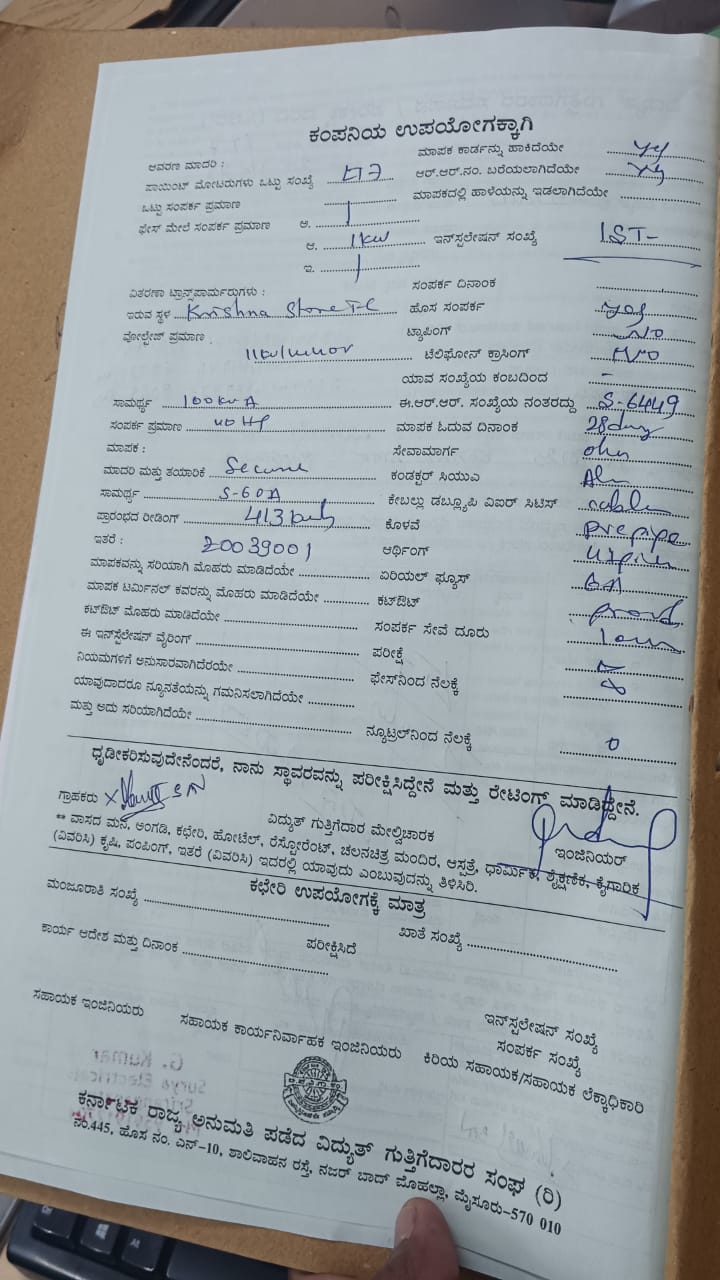 ಕಂಪನಿಯ ಉಪಯೋಗಕ್ಕಾಗಿ
ಆವರಣ ಮಾದರಿ : ಮಾಪಕ ಕಾರ್ಡನ್ನು ಹಾಕಿದೆಯೇ
ಪಾಯಿಂಟ್ ಮೋಟರುಗಳು ಒಟ್ಟು ಸಂಖ್ಯೆ ಆರ್.ಆರ್.ನಂ. ಬರೆಯಲಾಗಿದೆಯೇ
ಒಟ್ಟು ಸಂಪರ್ಕ ಪ್ರಮಾಣ ಮಾಪಕದಲ್ಲಿ ಹಾಳೆಯನ್ನು ಇಡಲಾಗಿದೆಯೇ
ಫೇಸ್ ಮೇಲೆ ಸಂಪರ್ಕ ಪ್ರಮಾಣ ಅ.
ಆ. 1kw ಇನ್‌ಸ್ಪಲೇಷನ್ ಸಂಖ್ಯೆ IST-
ಇ.
ವಿತರಣಾ ಟ್ರಾನ್ಸ್‌ಪಾರ್ಮರುಗಳು : ಸಂಪರ್ಕ ದಿನಾಂಕ
ಇರುವ ಸ್ಥಳ Krishna Store TC ಹೊಸ ಸಂಪರ್ಕ yes
ವೋಲ್ಟೇಜ್ ಪ್ರಮಾಣ ಟ್ಯಾಪಿಂಗ್ NO
ಟೆಲಿಫೋನ್ ಕ್ರಾಸಿಂಗ್ NO
ಯಾವ ಸಂಖ್ಯೆಯ ಕಂಬದಿಂದ -
ಸಾಮರ್ಥ್ಯ 100kVA ಈ.ಆರ್.ಆರ್. ಸಂಖ್ಯೆಯ ನಂತರದ್ದು S-6449
ಸಂಪರ್ಕ ಪ್ರಮಾಣ 40 HP ಮಾಪಕ ಓದುವ ದಿನಾಂಕ
ಮಾಪಕ : ಸೇವಾಮಾರ್ಗ
ಮಾದರಿ ಮತ್ತು ತಯಾರಿಕೆ Secure ಕಂಡಕ್ಟರ್ ಸಿಯುಎ
ಸಾಮರ್ಥ್ಯ 5-60A ಕೇಬಲ್ಲು ಡಬ್ಲ್ಯೂಪಿ ವಿಐರ್ ಸಿಟಿಸ್
ಪ್ರಾರಂಭದ ರೀಡಿಂಗ್ ಕೊಳವೆ
ಇತರೆ : 20039001 ಆರ್ಥಿಂಗ್
ಮಾಪಕವನ್ನು ಸರಿಯಾಗಿ ಮೊಹರು ಮಾಡಿದೆಯೇ ಏರಿಯಲ್ ಫ್ಯೂಸ್
ಮಾಪಕ ಟರ್ಮಿನಲ್ ಕವರನ್ನು ಮೊಹರು ಮಾಡಿದೆಯೇ ಕಟ್‌ಔಟ್
ಕಟ್‌ಔಟ್ ಮೊಹರು ಮಾಡಿದೆಯೇ ಸಂಪರ್ಕ ಸೇವೆ ದೂರು
ಈ ಇನ್‌ಸ್ಪಲೇಷನ್ ವೈರಿಂಗ್ ಪರೀಕ್ಷೆ
ನಿಯಮಗಳಿಗೆ ಅನುಸಾರವಾಗಿದೆರಯೇ ಫೇಸ್‌ನಿಂದ ನೆಲಕ್ಕೆ
ಯಾವುದಾದರೂ ನ್ಯೂನತೆಯನ್ನು ಗಮನಿಸಲಾಗಿದೆಯೇ
ಮತ್ತು ಅದು ಸರಿಯಾಗಿದೆಯೇ ನ್ಯೂಟ್ರಲ್‌ನಿಂದ ನೆಲಕ್ಕೆ 0
ಧೃಡೀಕರಿಸುವುದೇನೆಂದರೆ, ನಾನು ಸ್ಥಾವರವನ್ನು ಪರೀಕ್ಷಿಸಿದ್ದೇನೆ ಮತ್ತು ರೇಟಿಂಗ್ ಮಾಡಿದ್ದೇನೆ.
ಗ್ರಾಹಕರು ವಿದ್ಯುತ್ ಗುತ್ತಿಗೆದಾರ ಮೇಲ್ವಿಚಾರಕ ಇಂಜಿನಿಯರ್
** ವಾಸದ ಮನೆ, ಅಂಗಡಿ, ಕಛೇರಿ, ಹೋಟೆಲ್, ರೆಸ್ಟೋರೆಂಟ್, ಚಲನಚಿತ್ರ ಮಂದಿರ, ಆಸ್ಪತ್ರೆ, ಧಾರ್ಮಿಕ, ಶೈಕ್ಷಣಿಕ, ಕೈಗಾರಿಕ
(ವಿವರಿಸಿ) ಕೃಷಿ, ಪಂಪಿಂಗ್, ಇತರೆ (ವಿವರಿಸಿ) ಇದರಲ್ಲಿ ಯಾವುದು ಎಂಬುವುದನ್ನು ತಿಳಿಸಿರಿ.
ಕಛೇರಿ ಉಪಯೋಗಕ್ಕೆ ಮಾತ್ರ
ಮಂಜೂರಾತಿ ಸಂಖ್ಯೆ ಖಾತೆ ಸಂಖ್ಯೆ
ಕಾರ್ಯ ಆದೇಶ ಮತ್ತು ದಿನಾಂಕ ಪರೀಕ್ಷಿಸಿದೆ
ಇನ್‌ಸ್ಪಲೇಷನ್ ಸಂಖ್ಯೆ
ಸಂಪರ್ಕ ಸಂಖ್ಯೆ
ಸಹಾಯಕ ಇಂಜಿನಿಯರು ಸಹಾಯಕ ಕಾರ್ಯನಿರ್ವಾಹಕ ಇಂಜಿನಿಯರು ಕಿರಿಯ ಸಹಾಯಕ/ಸಹಾಯಕ ಲೆಕ್ಕಾಧಿಕಾರಿ
ಕರ್ನಾಟಕ ರಾಜ್ಯ ಅನುಮತಿ ಪಡೆದ ವಿದ್ಯುತ್ ಗುತ್ತಿಗೆದಾರರ ಸಂಘ (ರಿ)
ನಂ.445, ಹೊಸ ನಂ. ಎನ್-10, ಶಾಲಿವಾಹನ ರಸ್ತೆ, ನಜರ್ ಬಾದ್ ಮೊಹಲ್ಲಾ, ಮೈಸೂರು-570 010